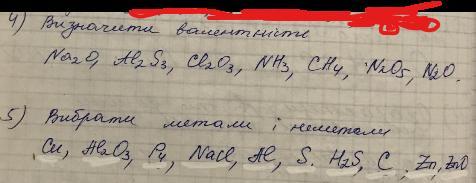 4) Визначити валентність
Na2O, Al2S3, Cl2O3, NH3, CH4, N2O5, N2O.
5) Вибрати метали і неметали
Cu, Al2O3, P4, NaCl, Al, S. H2S, C, Zn, ZnO